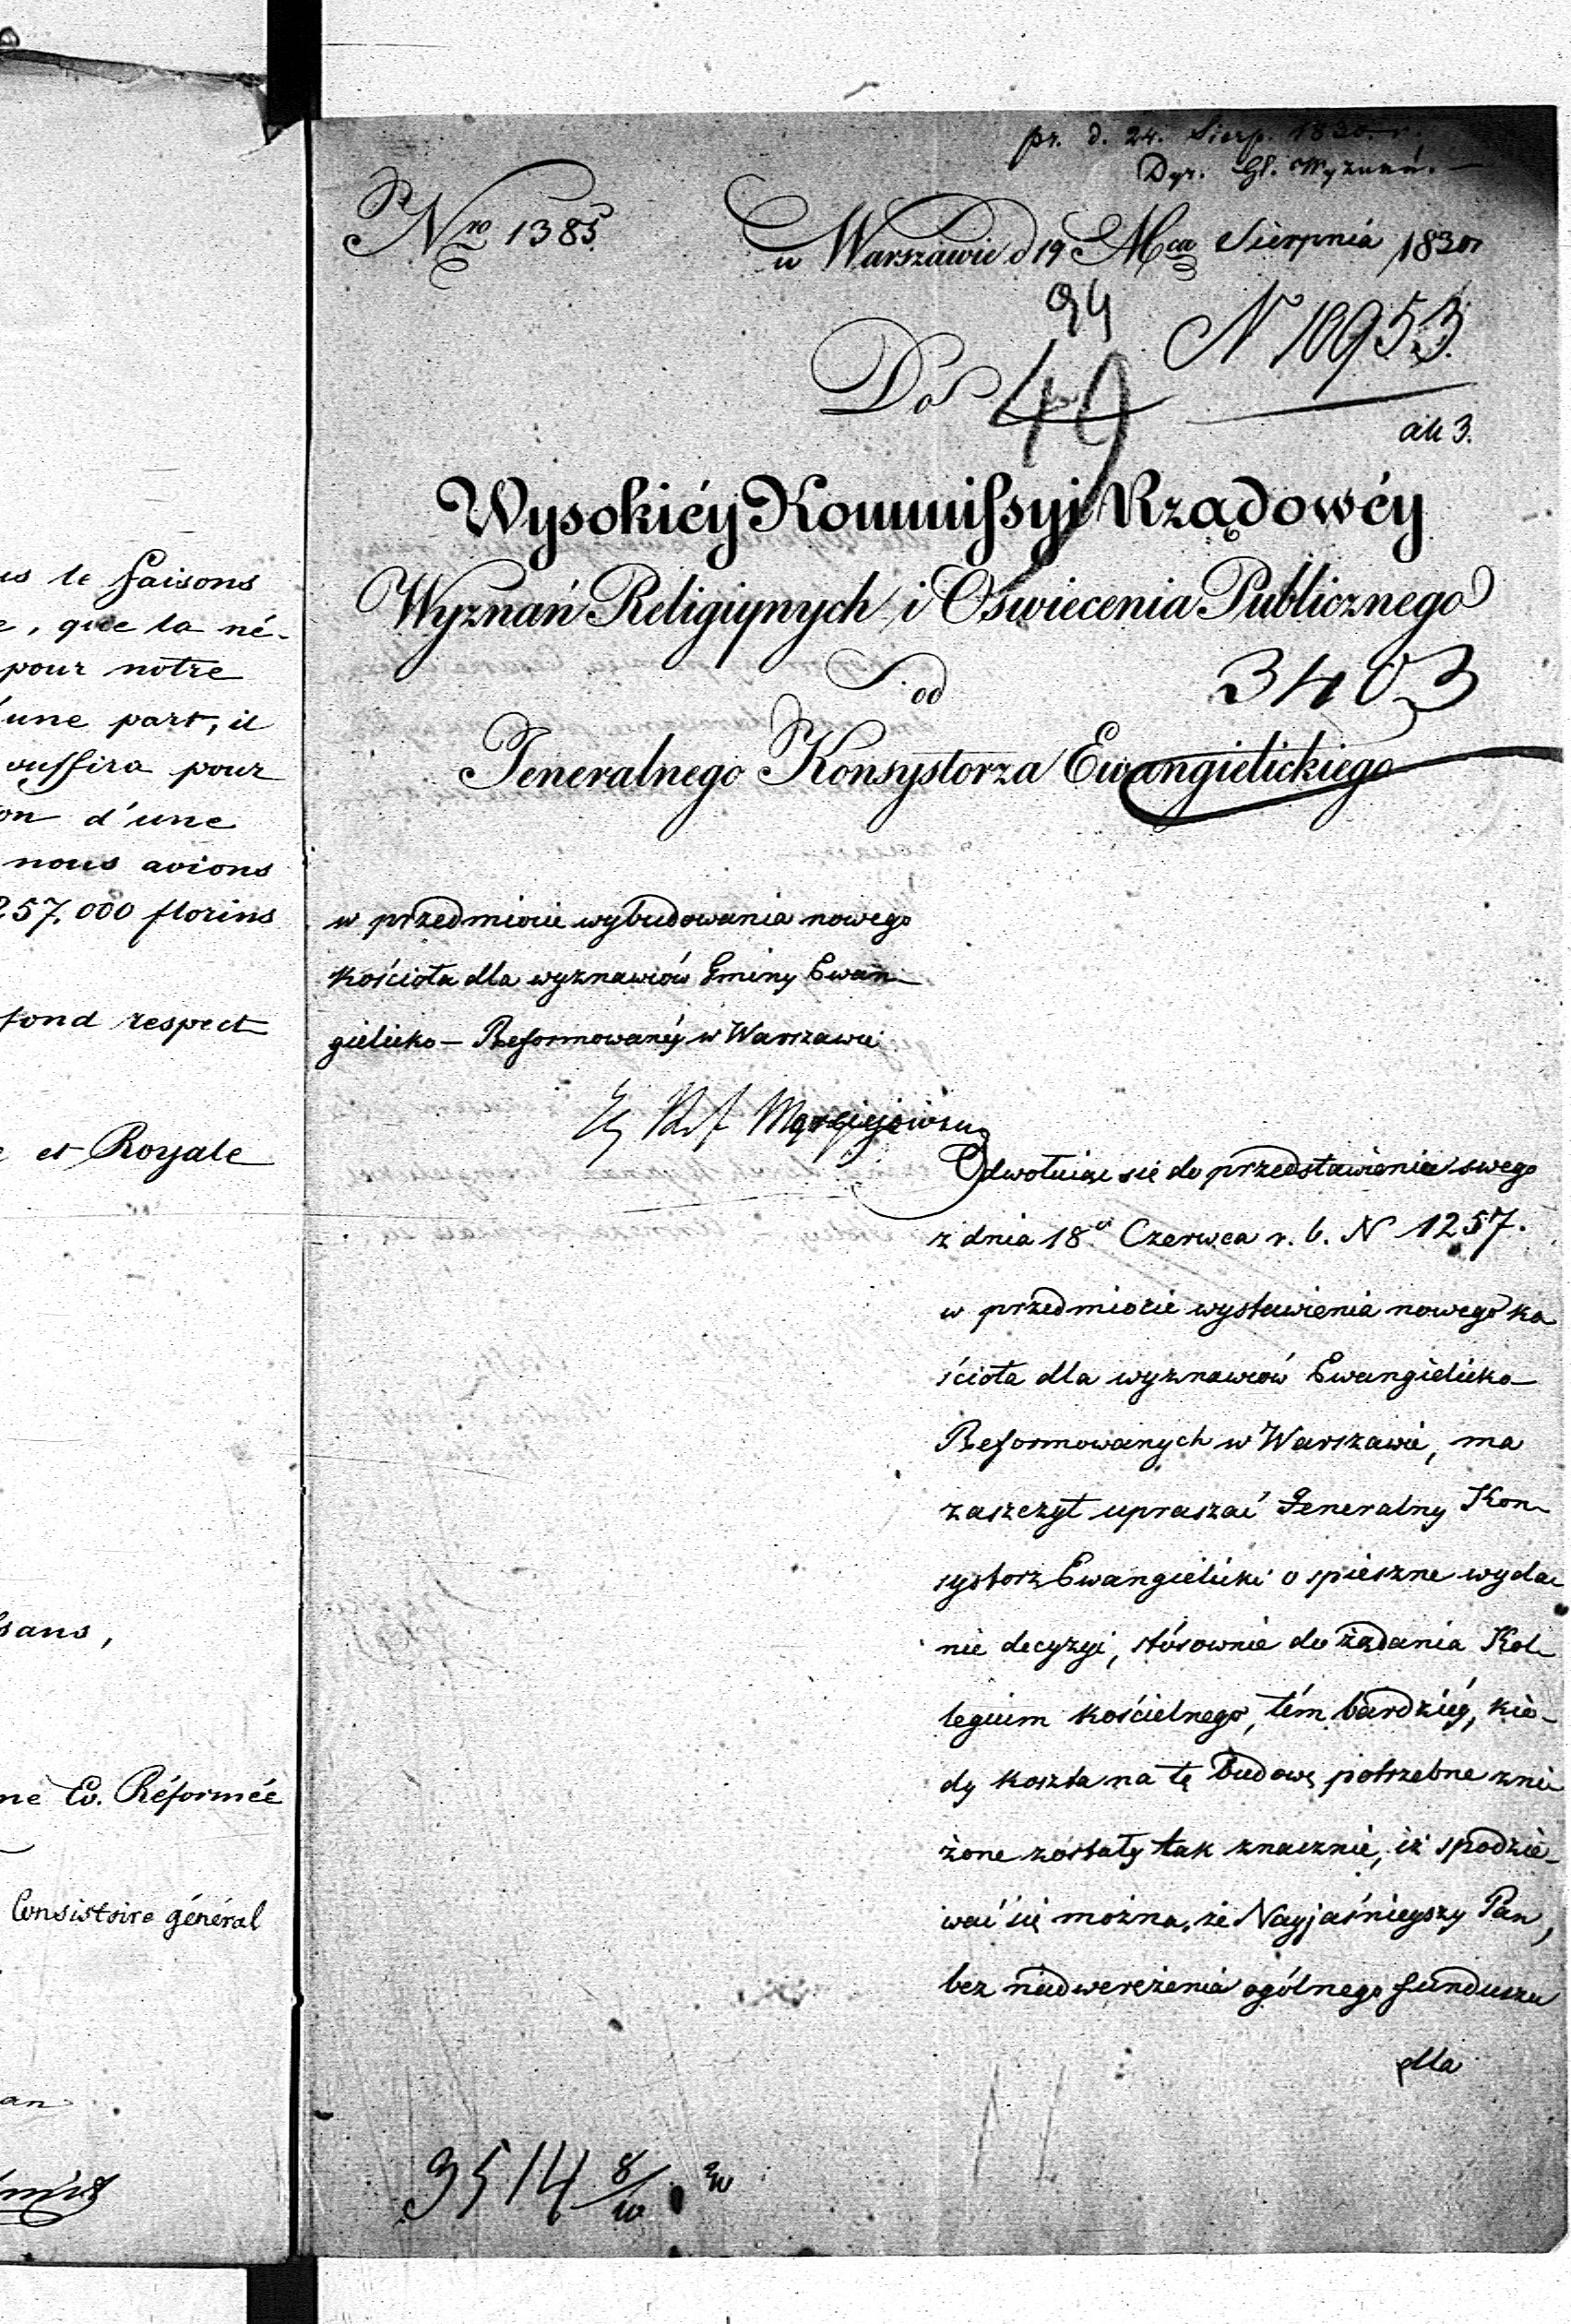 us le faisons
e, que la né-
pour notre
'une part, il
suffira pour
on d'une
nous avions
257.000 florins
fond respect
e et Royale
sans,
ne Ev. Réformée
Consistoire général
an
pr. d. 24. Sierp. 1830. r.
Dyr. Gł. Wyznań.
Nro 1385.
w Warszawie d 19 Mca Sierpnia 1830r
94
N 10953.
Do
49
ak 3.
Wysokiéy Kommissyi Rządowéy
Wyznań Religiynych i Oświecenia Publicznego
od
3403
Jeneralnego Konsystorza Ewangielickiego
w przedmiocie wybudowania nowego
Kościoła dla wyznawców Gminy Ewan-
gielicko-Reformowanéy w Warszawie
Odwołuiąc się do przedstawienia swego
z dnia 18 Czerwca r. b. N 1257.
w przedmiocie wystawienia nowego ko
ścioła dla wyznawców Ewangielicko-
Reformowanych w Warszawie, ma
zaszczyt upraszać Generalny Kon-
systorz Ewangielicki o spieszne wyda-
nie decyzyi, stósownie do żądania Kol-
legium kościelnego, tém bardziéy, kie-
dy koszta na tę budowę potrzebne zni-
żone zostały tak znacznie, iż spodzie-
wać się można, że Nayjaśnieyszy Pan,
bez nadwerężenia ogólnego funduszu
dla
9514 8/10